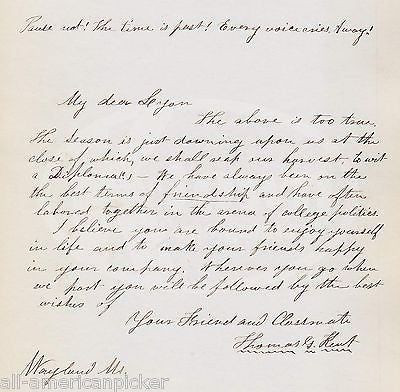 Pause not! The time is past! Every voice cries, Away!
My dear Lyon
The above is too true.
The season is just dawning upon us at the
close of which, we shall reap our harvest to wit
a Diploma(s) – We have always been on the
the best terms of friendship and have often
labored together in the arena of college politics.
I believe you are bound to enjoy yourself
in life and to make your friends happy
in your company. Wherever you go when
we part you will be followed by the best
wishes of
Your Friend and Classmate
Thomas G. Kent
Wayland Ms.
all-americanpicker